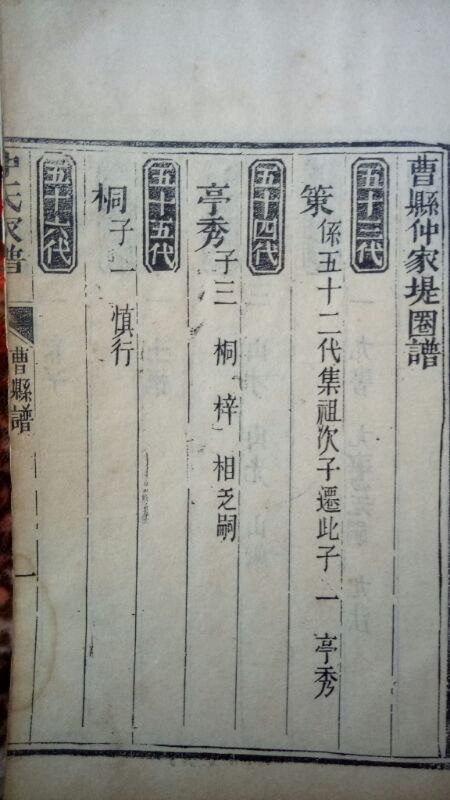 曹縣仲家堤圈譜
五十三代
策 係五十二代集祖次子遷此子一 亭秀
五十四代
亭秀 子三 桐 梓 相乏嗣
五十五代
桐 子一 慎行
五十六代
仲氏家譜 曹縣譜 一